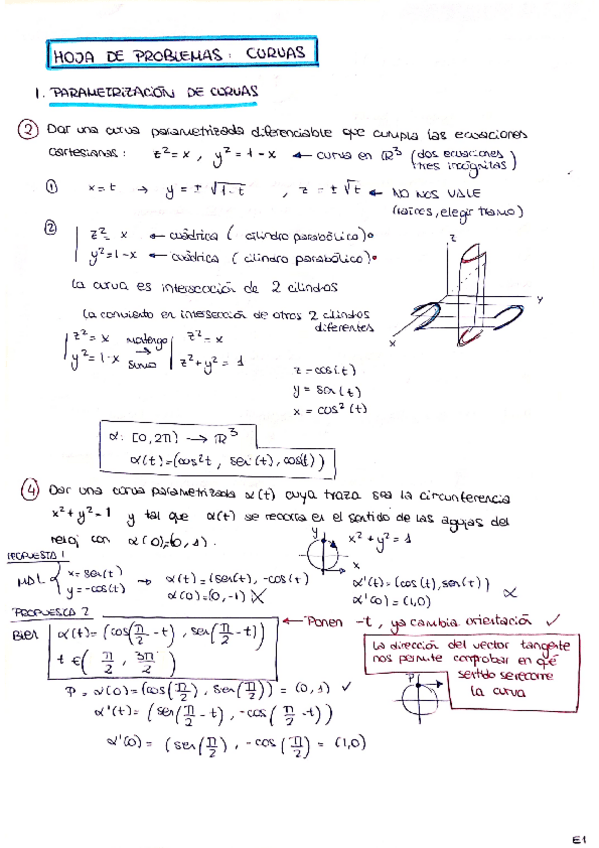 HOJA DE PROBLEMAS: CURVAS
1. PARAMETRIZACIÓN DE CURVAS
② Dar una curva parametrizada diferenciable que cumpla las ecuaciones
cartesianas: z²=x, y²=1-x ← curva en ℝ³ (dos ecuaciones
tres incógnitas)
① x=t → y=±√1-t, z=±√t ← NO NOS VALE
(raíces, elegir tramo)
② z²=x ← cuádrica (cilindro parabólico)
y²=1-x ← cuádrica (cilindro parabólico)
La curva es intersección de 2 cilindros
La convierto en intersección de otros 2 cilindros
diferentes
z²=x mantengo z²=x
y²=1-x → sumo z²+y²=1
z=cos(t)
y=sen(t)
x=cos²(t)
z
y
x
α: [0,2π) → ℝ³
α(t)=(cos²t, sen(t), cos(t))
④ Dar una curva parametrizada α(t) cuya traza sea la circunferencia
x²+y²=1 y tal que α(t) se recorra en el sentido de las agujas del
reloj con α(0)=(0,1).
y x²+y²=1
x
PROPUESTA 1
MAL x=sen(t) → α(t)=(sen(t), -cos(t)) α'(t)=(cos(t), sen(t))
y=-cos(t) α(0)=(0,-1) X α'(0)=(1,0)
PROPUESTA 2
Bien α(t)=(cos(π/2-t), sen(π/2-t)) ← Ponen -t, ya cambia orientación ✓
t∈(π/2, 3π/2)
La dirección del vector tangente
nos permite comprobar en qué
sentido se recorre
la curva
P=α(0)=(cos(π/2), sen(π/2))=(0,1) ✓
P
α'(t)=(sen(π/2-t), -cos(π/2-t))
α'(0)=(sen(π/2), -cos(π/2)=(1,0)
E1